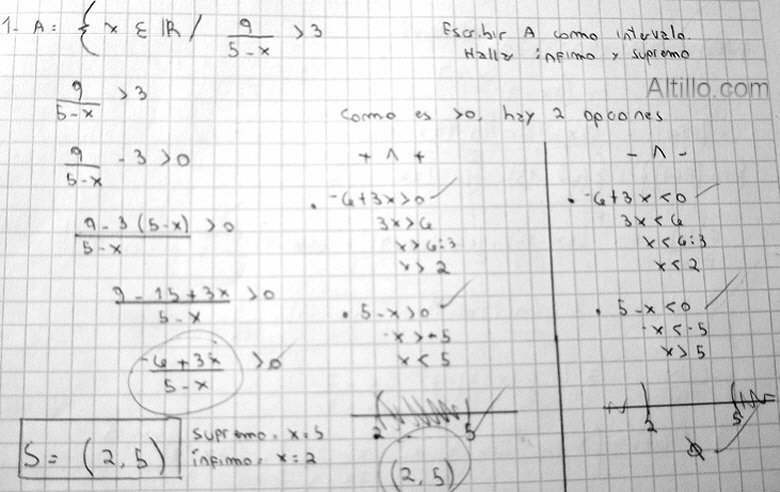 1- A = { x ∈ IR / 9/(5-x) > 3
Escribir A como intervalo.
Hallar ínfimo y supremo
Altillo.com
9/(5-x) > 3
9/(5-x) - 3 > 0
(9 - 3(5-x))/(5-x) > 0
(9 - 15 + 3x)/(5-x) > 0
(-6 + 3x)/(5-x) > 0
S = (2,5)
supremo: x = 5
ínfimo: x = 2
Como es >0, hay 2 opciones
+ ∧ +
• -6+3x>0
3x>6
x>6:3
x>2
• 5-x>0
-x>-5
x<5
2 5
(2,5)
- ∧ -
• -6+3x<0
3x<6
x<6:3
x<2
• 5-x<0
-x<-5
x>5
2 5
∅